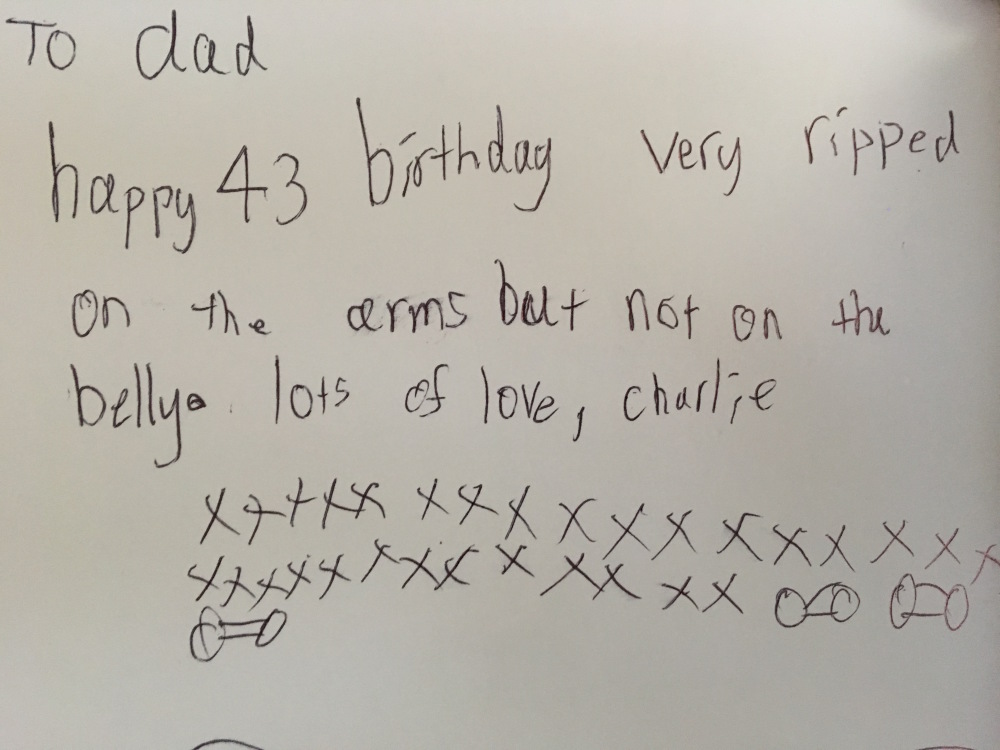 To dad
happy 43 birthday very ripped
on the arms but not on the
belly. lots of love, charlie
x x x x x x x x x x x x x x x x x x
x x x x x x x x x x x x x x